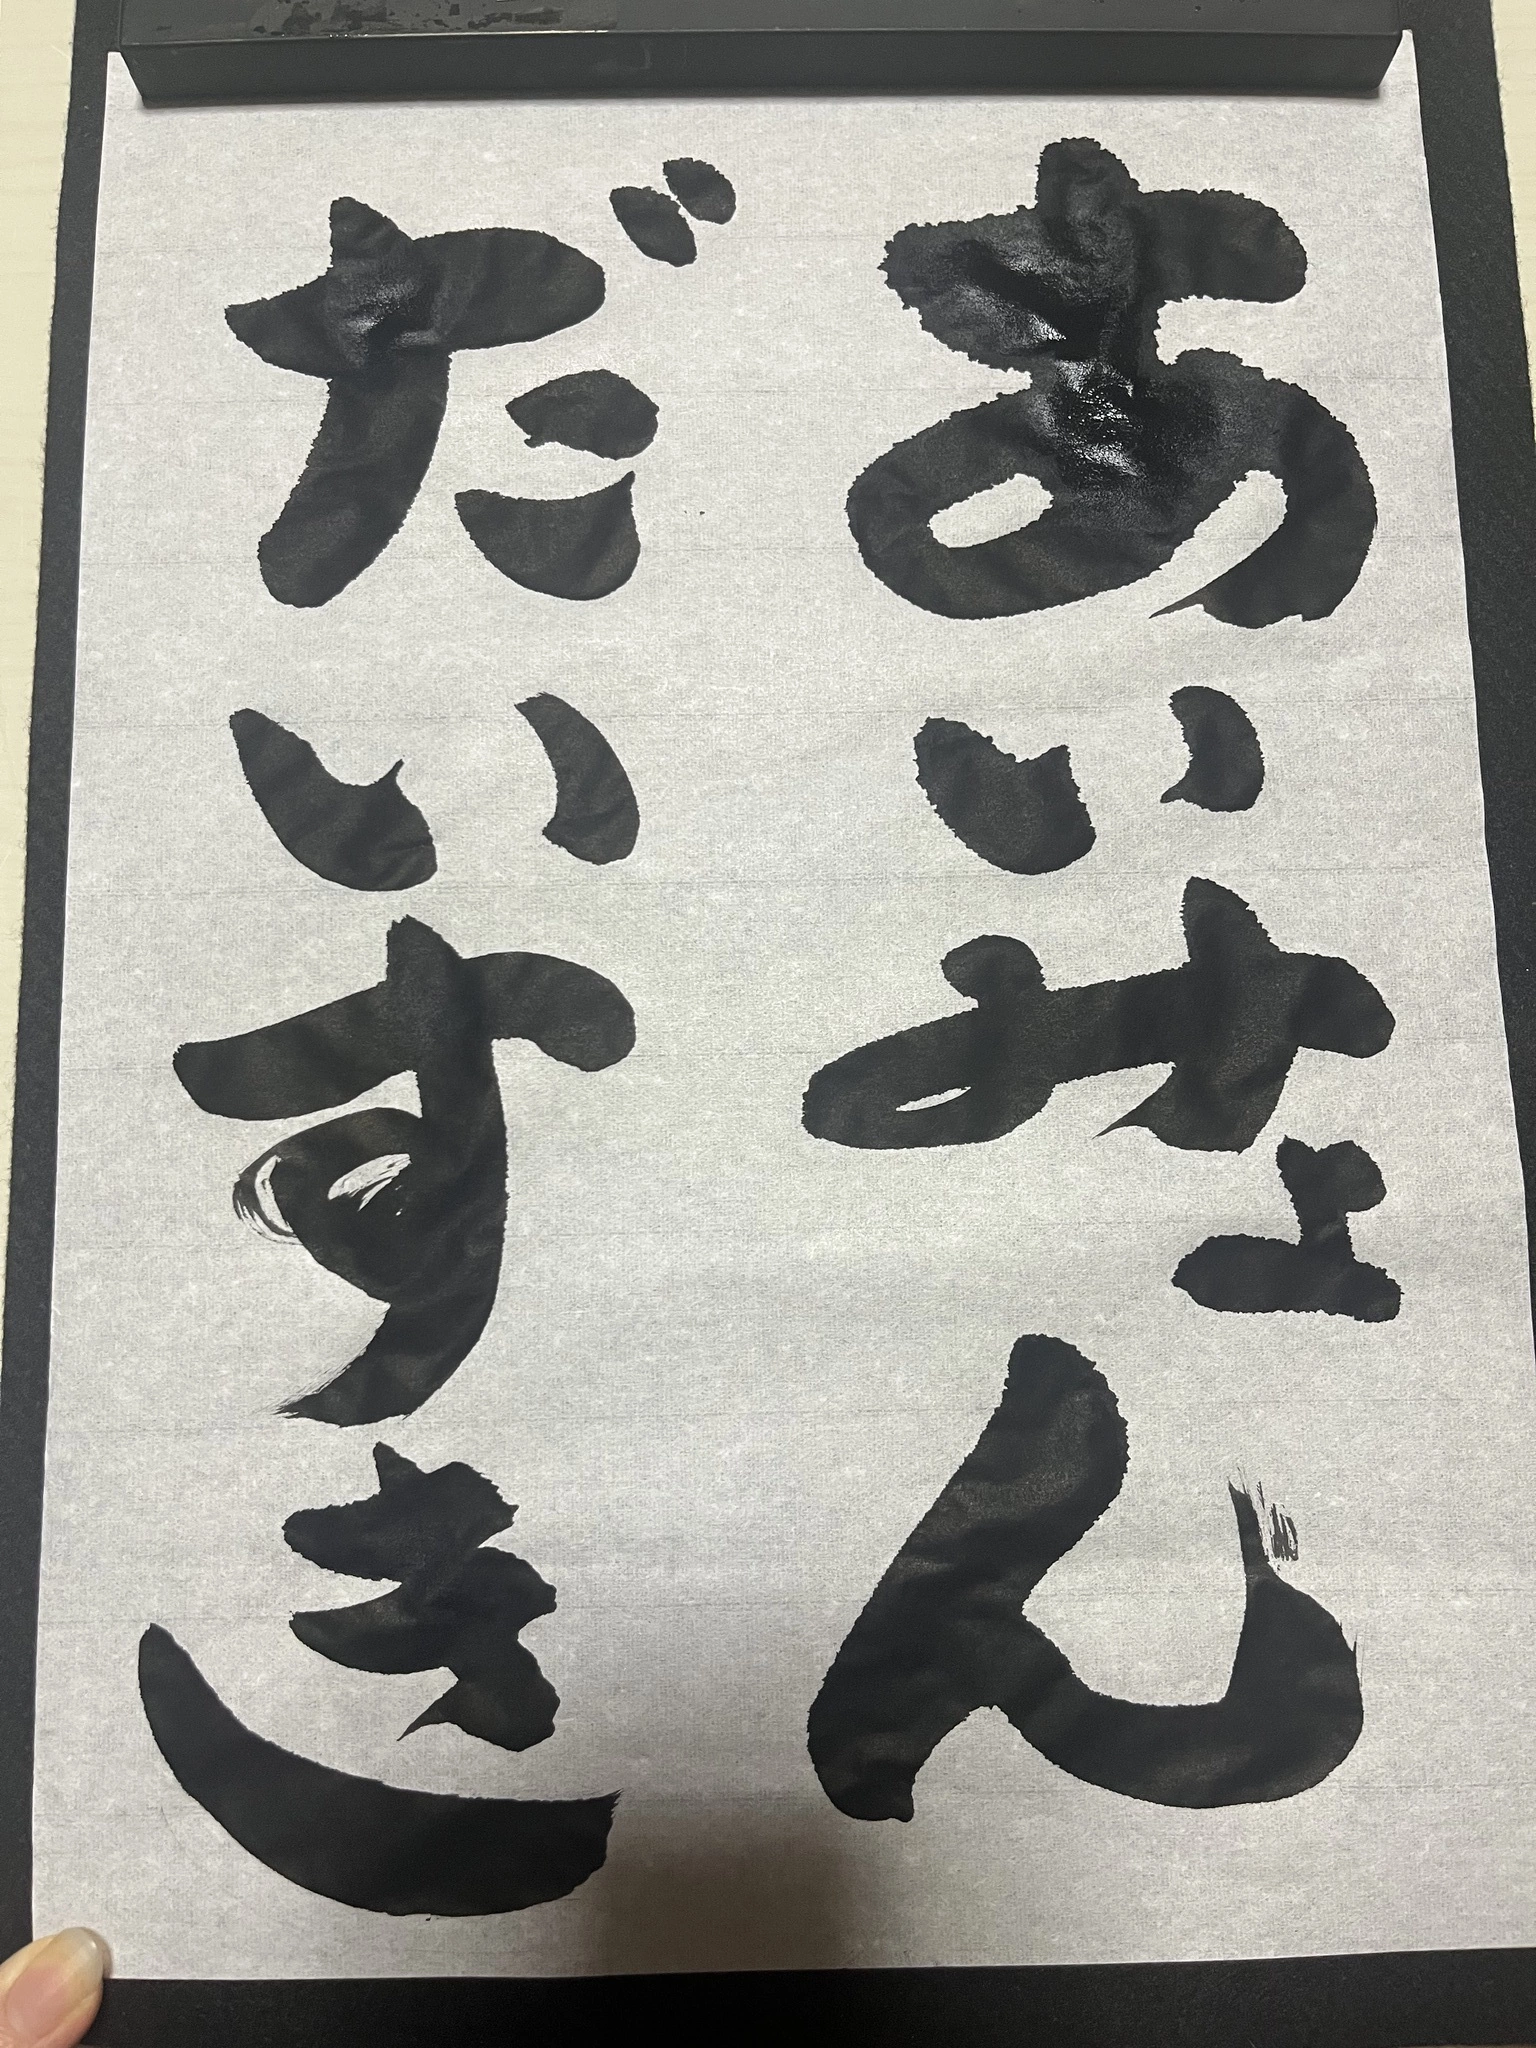 あいみょん
だいすき